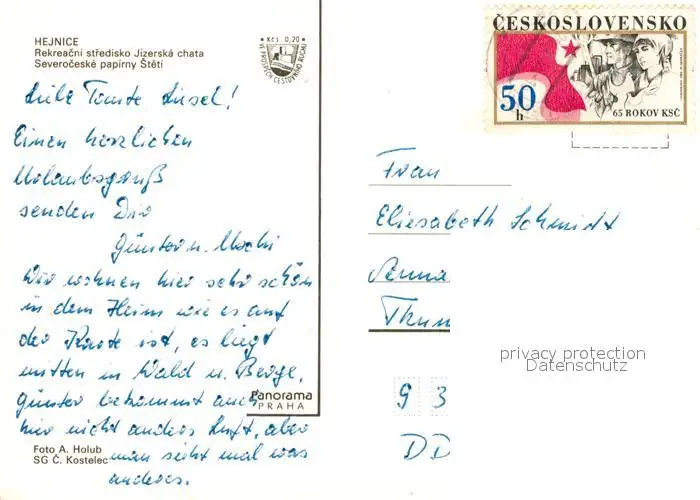 HEJNICE
Rekreační středisko Jizerská chata
Severočeské papírny Štětí
Kčs 0,20
VE PROSPĚCH CESTOVNÍHO RUCHU
ČESKOSLOVENSKO
50 h
65 ROKOV KSČ
Liebe Tante Liesel!
Einen herzlichen
Urlaubsgruß
senden Dir
Günter u.
Wir wohnen hier sehr schön
in dem Heim wie es auf
der Karte ist, es liegt
mitten in Wald u. Berge,
Günter bekommt auch
hier nicht anders Luft, aber
man sieht mal was
anderes.
Panorama
PRAHA
Foto A. Holub
SG Č. Kostelec
Frau
Eliesabeth Schmidt
Anna
Thum
privacy protection
Datenschutz
9 3
DD